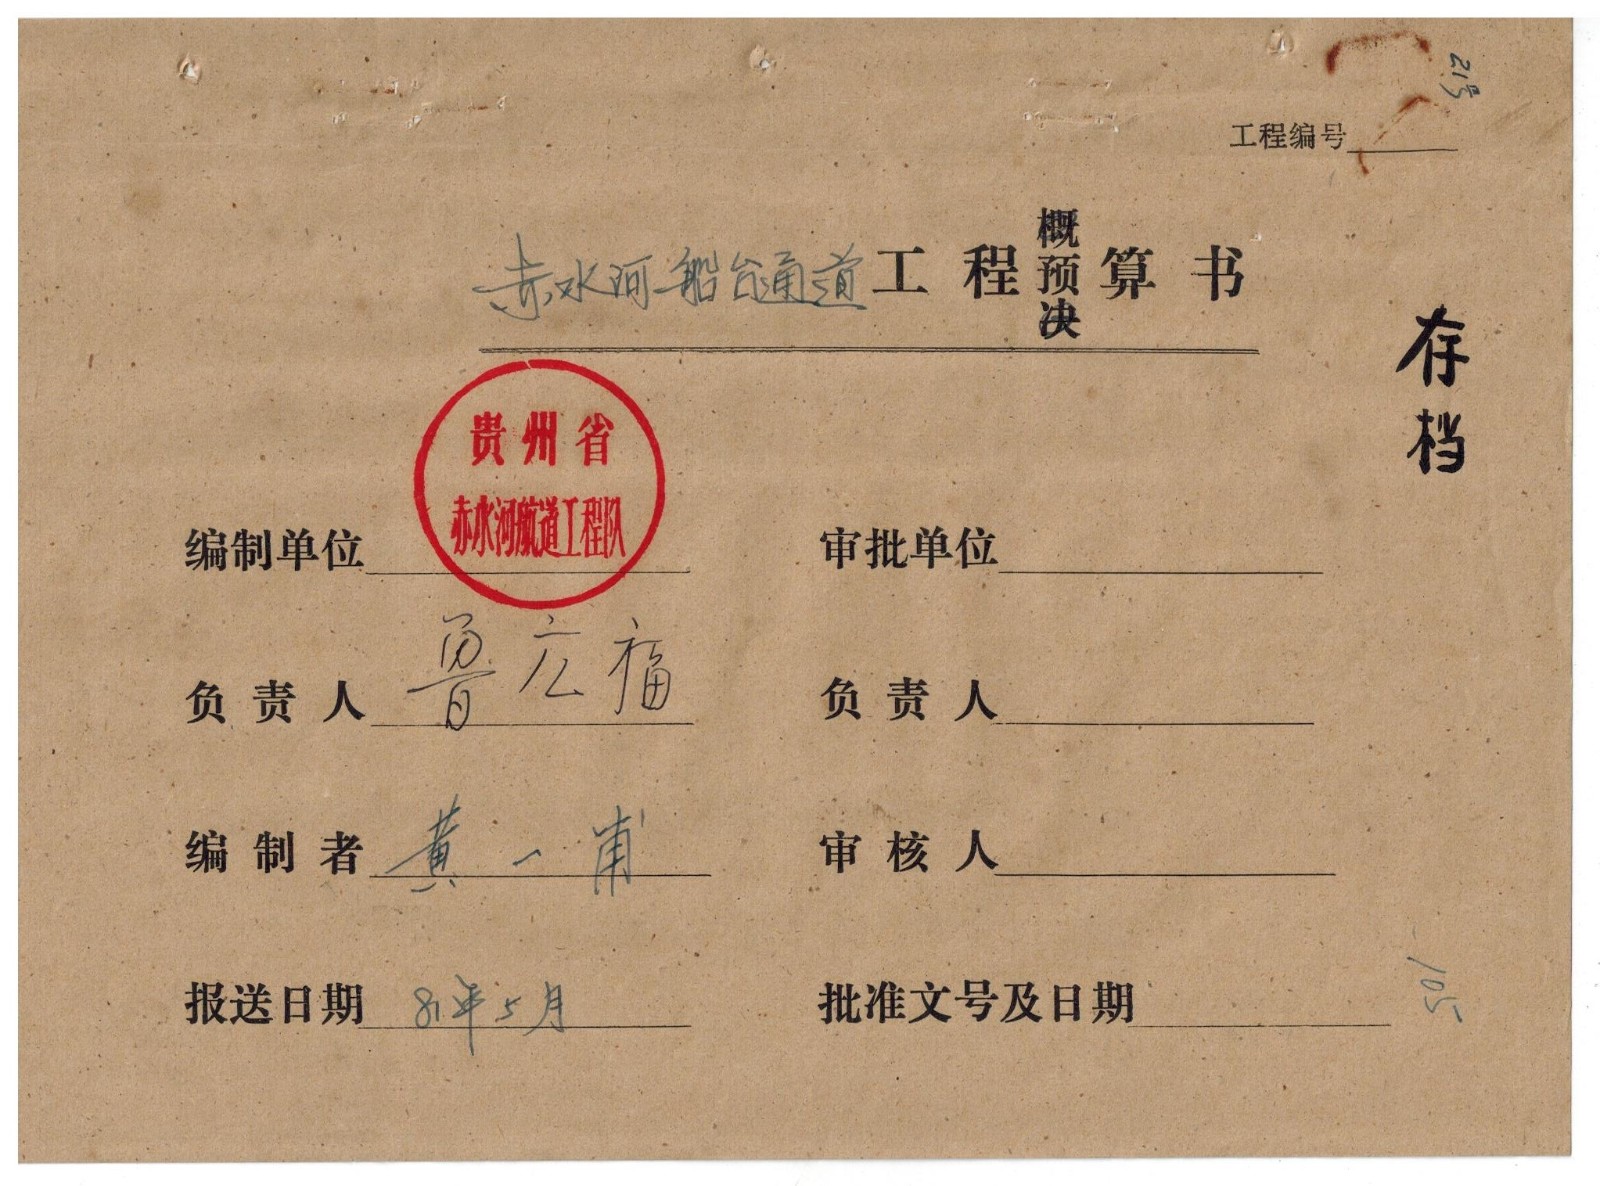 21号
工程编号
赤水河船台通道工程概预决算书
存档
贵州省
赤水河航道工程队
编制单位
审批单位
负责人 鲁广福
负责人
编制者 黄一甫
审核人
报送日期 81年5月
批准文号及日期
105